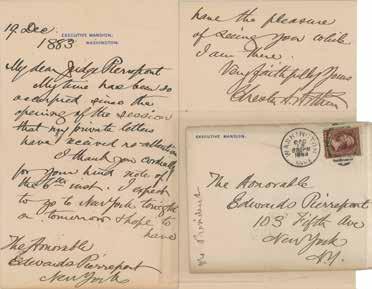 19 Dec.
EXECUTIVE MANSION,
1883
WASHINGTON.
My dear Judge Pierrepont
My time has been so
occupied since the
opening of the session
that my private letters
have received no attention
I thank you cordially
for your kind note of
the 6th inst. I expect
to go to New York tonight
or tomorrow & hope to
have
The Honorable
Edwards Pierrepont
New York
have the pleasure
of seeing you while
I am there.
Very faithfully Yours
Chester A. Arthur
EXECUTIVE MANSION.
WASHINGTON
DEC
1883
The President
The Honorable
Edwards Pierrepont
103 Fifth Ave
New York
N.Y.